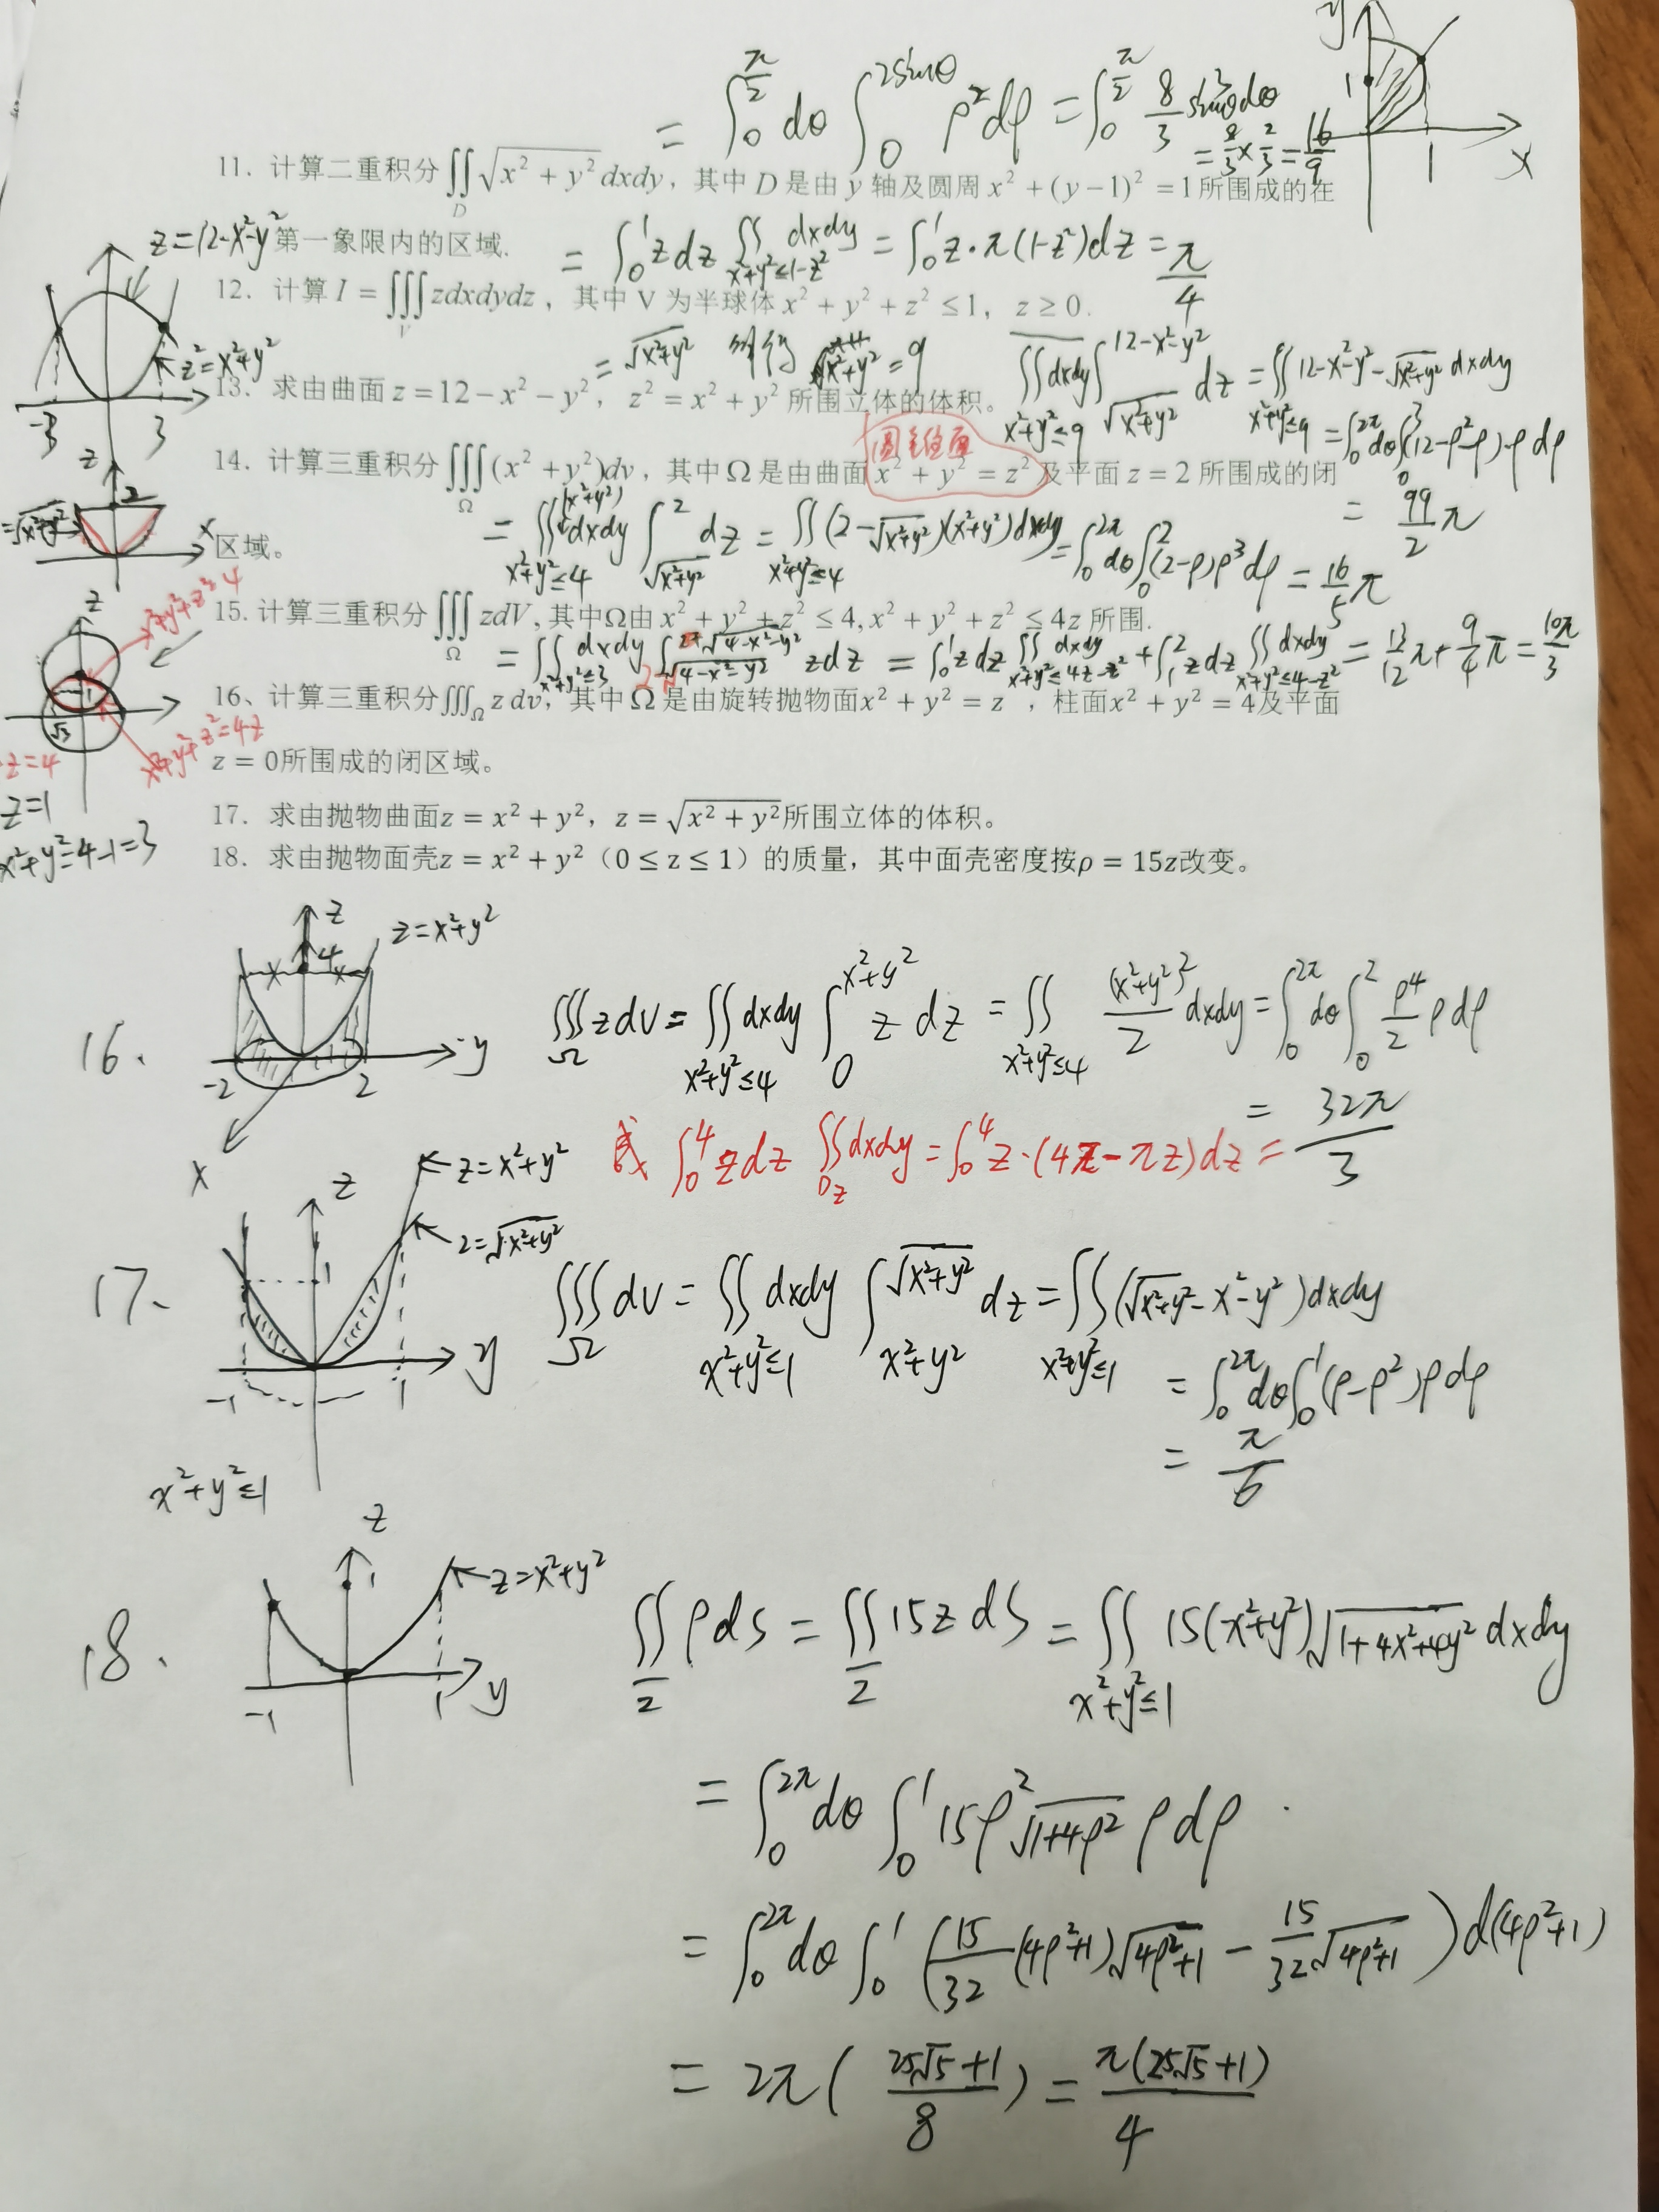 = ∫₀^{π/2} dθ ∫₀^{2sinθ} ρ² dρ = ∫₀^{π/2} 8/3 sin³θ dθ
= 8/3 × 2/3 = 16/9
y
1
1
x
11. 计算二重积分∬_D √(x² + y²) dxdy，其中 D 是由 y 轴及圆周 x² + (y−1)² = 1 所围成的在
第一象限内的区域.
z=12-x²-y²
= ∫₀¹ z dz ∬_{x²+y²≤1-z²} dxdy = ∫₀¹ z·π(1-z²)dz = π/4
12. 计算 I = ∭_V zdxdydz ，其中 V 为半球体 x² + y² + z² ≤ 1，z ≥ 0.
z²=x²+y²
-3
3
= √(x²+y²)
x²+y² = 9
13. 求由曲面 z = 12 − x² − y²，z² = x² + y² 所围立体的体积。
∬_{x²+y²≤9} dxdy ∫_{√(x²+y²)}^{12-x²-y²} dz = ∬_{x²+y²≤9} 12-x²-y²-√(x²+y²) dxdy
= ∫₀^{2π} dθ ∫₀³ (12-ρ²-ρ)·ρ dρ
= 99/2 π
圆锥面
14. 计算三重积分∭_Ω (x² + y²)dv，其中 Ω 是由曲面 x² + y² = z² 及平面 z = 2 所围成的闭
区域。
z
2
x
=√(x²+y²)
= ∬_{x²+y²≤4} (x²+y²) dxdy ∫_{√(x²+y²)}^2 dz = ∬_{x²+y²≤4} (2-√(x²+y²))(x²+y²)dxdy = ∫₀^{2π} dθ ∫₀² (2-ρ)ρ³dρ = 16/5 π
15. 计算三重积分∭_Ω zdV, 其中Ω由 x² + y² + z² ≤ 4, x² + y² + z² ≤ 4z 所围.
z
x²+y²+z²=4
1
√3
x²+y²+z²=4z
z=4
z=1
x²+y²=4-1=3
= ∬_{x²+y²≤3} dxdy ∫_{2-√(4-x²-y²)}^{√(4-x²-y²)} zdz = ∫₀¹ z dz ∬_{x²+y²≤4z-z²} dxdy + ∫₁² z dz ∬_{x²+y²≤4-z²} dxdy = 13/12 π + 9/4 π = 10π/3
16、计算三重积分∭_Ω z dv，其中 Ω 是由旋转抛物面x² + y² = z ，柱面x² + y² = 4及平面
z = 0所围成的闭区域。
17. 求由抛物曲面z = x² + y²，z = √(x² + y²)所围立体的体积。
18. 求由抛物面壳z = x² + y²（0 ≤ z ≤ 1）的质量，其中面壳密度按ρ = 15z改变。
16.
z
4
z=x²+y²
-2
2
y
x
∭_Ω zdv = ∬_{x²+y²≤4} dxdy ∫₀^{x²+y²} z dz = ∬_{x²+y²≤4} (x²+y²)²/2 dxdy = ∫₀^{2π} dθ ∫₀² ρ⁴/2 ρ dρ
= 32π/3
或 ∫₀⁴ zdz ∬_{Dz} dxdy = ∫₀⁴ z·(4π-πz)dz =
17.
z
z=x²+y²
z=√(x²+y²)
1
-1
1
y
x²+y²≤1
∭_Ω dv = ∬_{x²+y²≤1} dxdy ∫_{x²+y²}^{√(x²+y²)} dz = ∬_{x²+y²≤1} (√(x²+y²)-x²-y²)dxdy
= ∫₀^{2π} dθ ∫₀¹ (ρ-ρ²)ρdρ
= π/6
18.
z
1
z=x²+y²
-1
1
y
∬_Σ ρds = ∬_Σ 15z dS = ∬_{x²+y²≤1} 15(x²+y²)√(1+4x²+4y²) dxdy
= ∫₀^{2π} dθ ∫₀¹ 15ρ²√(1+4ρ²) ρdρ
= ∫₀^{2π} dθ ∫₀¹ (15/32 (4ρ²+1)√(4ρ²+1) - 15/32 √(4ρ²+1)) d(4ρ²+1)
= 2π( (25√5+1)/8 ) = π(25√5+1)/4